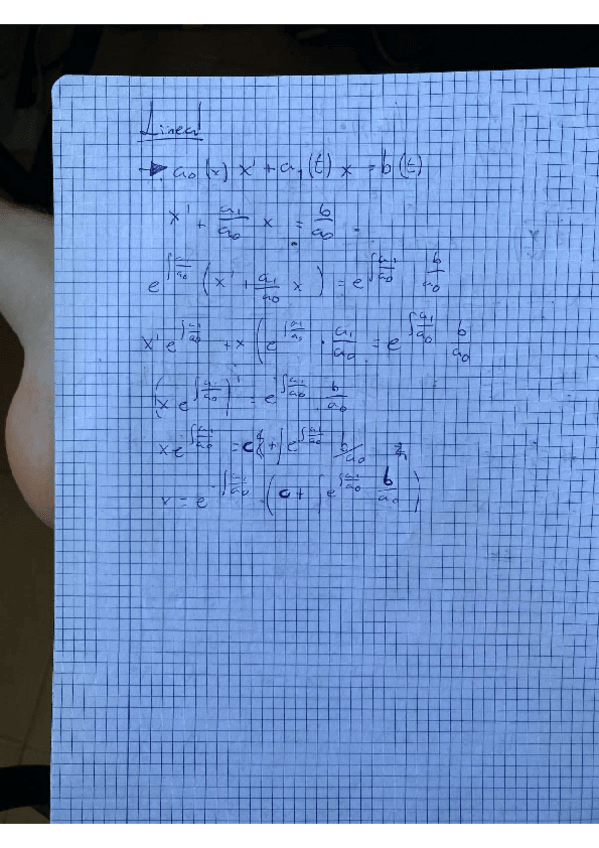 Lineal
→ a₀(x) x' + a₁(t) x = b(t)
x' + a₁/a₀ x = b/a₀
e^{∫a₁/a₀} (x' + a₁/a₀ x) = e^{∫a₁/a₀} b/a₀
x' e^{∫a₁/a₀} + x (e^{∫a₁/a₀} · a₁/a₀ = e^{∫a₁/a₀} b/a₀
(x e^{∫a₁/a₀})' = e^{∫a₁/a₀} b/a₀
x e^{∫a₁/a₀} = c + ∫e^{∫a₁/a₀} b/a₀
x = e^{-∫a₁/a₀} · (c + ∫e^{∫a₁/a₀} b/a₀)